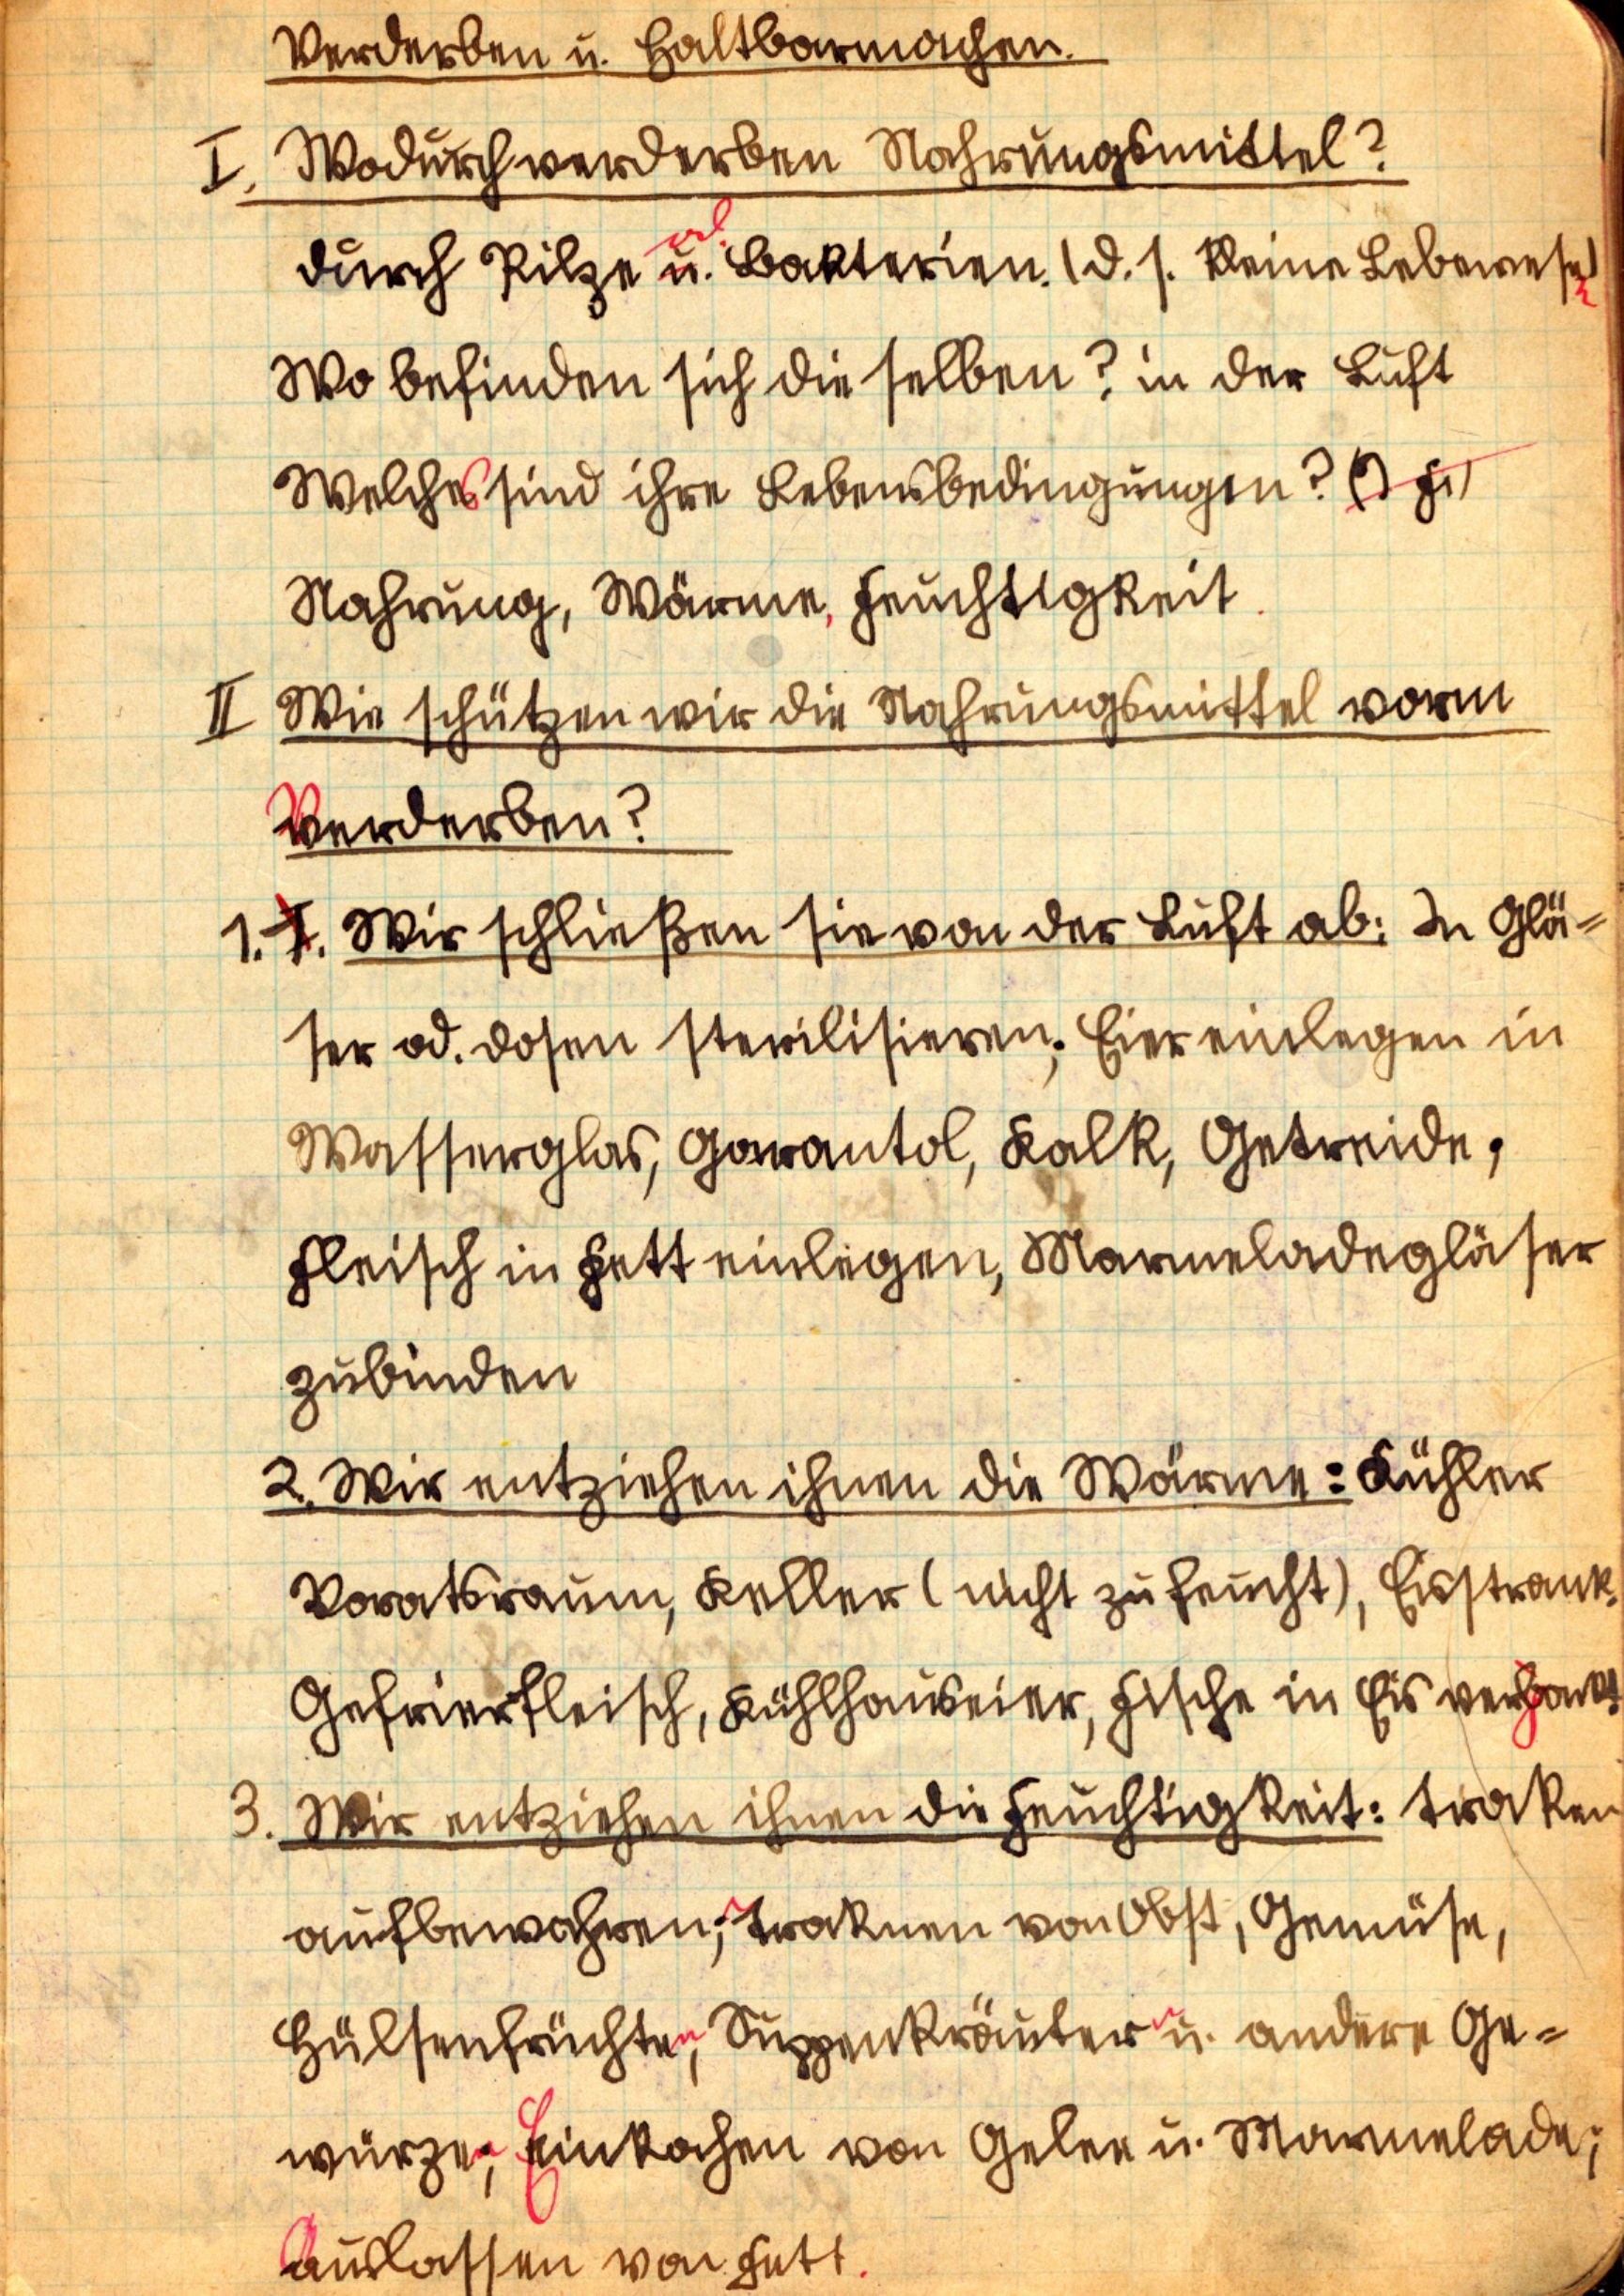 Verderben u. Haltbarmachen.
I. Wodurch verderben Nahrungsmittel?
durch Pilze u. od. Bakterien. (d. s. kleine Lebewesen)
Wo befinden sich die selben? in der Luft
Welches sind ihre Lebensbedingungen?
Nahrung, Wärme, Feuchtigkeit.
II Wie schützen wir die Nahrungsmittel vorm
Verderben?
1. I. Wir schließen sie von der Luft ab: In Glä=
ser od. dosen sterilisieren; Eier einlegen in
Wasserglas, Garantol, Kalk, Getreide;
Fleisch in Fett einlegen, Marmeladegläser
zubinden
2. Wir entziehen ihnen die Wärme: Kühler
Voratsraum, Keller (nicht zu feucht), Eisstrank.
Gefrierfleisch, Kühlhauseier, Fische in Eis verpackt
3. Wir entziehen ihnen die Feuchtigkeit: troken
aufbewahren; Troknen von Obst, Gemüse,
Hülsenfrüchten, Suppenkräuter u. andere Ge=
würze; Einkochen von Gelee u. Marmelade;
Auslassen von Fett.